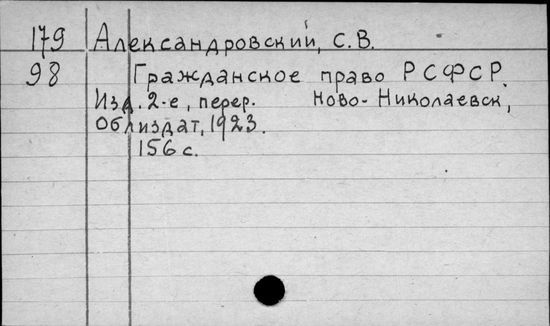 179 Александровский, С.В.
98 Гражданское право РСФСР.
Изд. 2-е, перер. Ново-Николаевск,
Облиздат, 1923.
156 с.